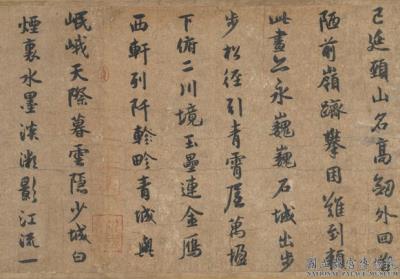 廷頭山名高劒外回首
陋前嶺躋攀困難到賴
此畫亦永巍巍石城出步
步松徑引青霄屋萬楹
下俯二川境玉壘連金鴈
西軒列阡畛青城與
岷峨天際暮雲隱少城白
煙裏水墨淡影江流一
國立故宮博物院
NATIONAL PALACE MUSEUM